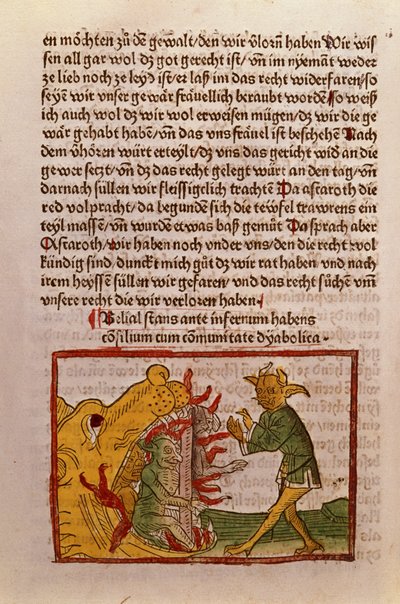 en möchten zů dē gewalt/den wir v̓lorn̄ haben Wir wis
sen all gar wol dz got gerecht ist/vn̄ im nyemāt weder
ze lieb noch ze leyd ist/er laß im das recht widerfaren/so
seyen wir vnser gewär fräuellich beraubt wordē So weiß
ich auch wol dz wir wol erweisen mügen/dz wir die ge
wär gehabt habeṅ/vn̄ das vns fräuel ist beschehē Nach
dem v̓höreṅ würt erteylt/dz vns das gericht wid an die
gewer setz/vn̄ dz das recht gelegt wurt an den tag/vn̄
darnach süllen wir fleissigclich trachtē Da astaroth die
red volpracht/da begundē sich die tewfel trawrens ein
teyl massen̄/vn̄ wurdē etwas baß gemůt Da sprach aber
Astaroth/wir haben noch vnder vns/den die recht vol
kündig sind/dunckt mich gůt dz wir rat haben/vnd nach
irem heyssen süllen wir gefaren/vnd das recht sůchē vn̄
vnsere recht die wir verlozen haben
Belial stans ante infernum habens
cōsilium cum cōmunitate dyabolica